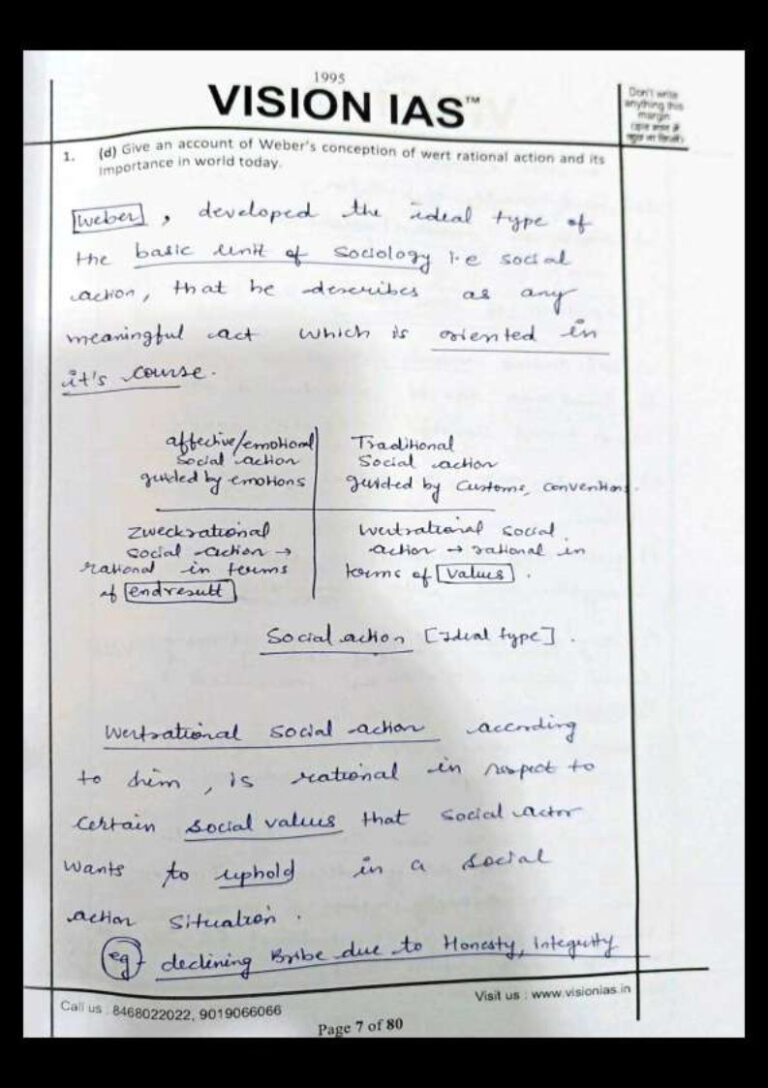 1995
VISION IAS™
Don't write
anything this
margin
1. (d) Give an account of Weber's conception of wert rational action and its
importance in world today.
Weber, developed the ideal type of
the basic unit of sociology i.e social
action, that he describes as any
meaningful act which is oriented in
it's course.
affective/emotional
social action
guided by emotions
Traditional
Social action
guided by customs, conventions.
Zweckrational
social action →
rational in terms
of endresult
Wertrational social
action → rational in
terms of values.
Social action [Ideal type].
Wertrational social action according
to him, is rational in respect to
certain social values that social actor
wants to uphold in a social
action situation.
eg declining Bribe due to Honesty, Integrity
Call us : 8468022022, 9019066066
Visit us : www.visionias.in
Page 7 of 80